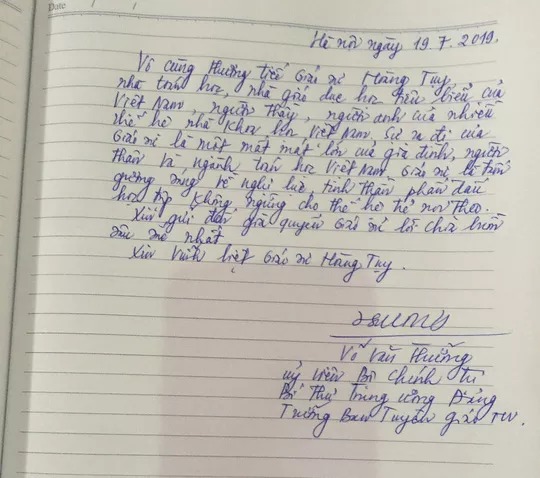 Date / /
Hà nội ngày 19.7.2019.
Vô cùng thương tiếc Giáo sư Hoàng Tụy,
nhà toán học, nhà giáo dục học tiêu biểu của
Việt Nam, người thầy, người anh của nhiều
thế hệ nhà khoa học Việt Nam. Sự ra đi của
Giáo sư là một mất mát lớn của gia đình, người
thân và ngành toán học Việt Nam. Giáo sư là tấm
gương sáng về nghị lực, tinh thần phấn đấu
học tập không ngừng cho thế hệ trẻ noi theo.
Xin gửi đến gia quyến Giáo sư lời chia buồn
sâu sắc nhất.
Xin vĩnh biệt Giáo sư Hoàng Tụy.
Võ Văn Thưởng
uỷ viên Bộ Chính trị
Bí thư Trung ương Đảng
Trưởng Ban Tuyên giáo TW.